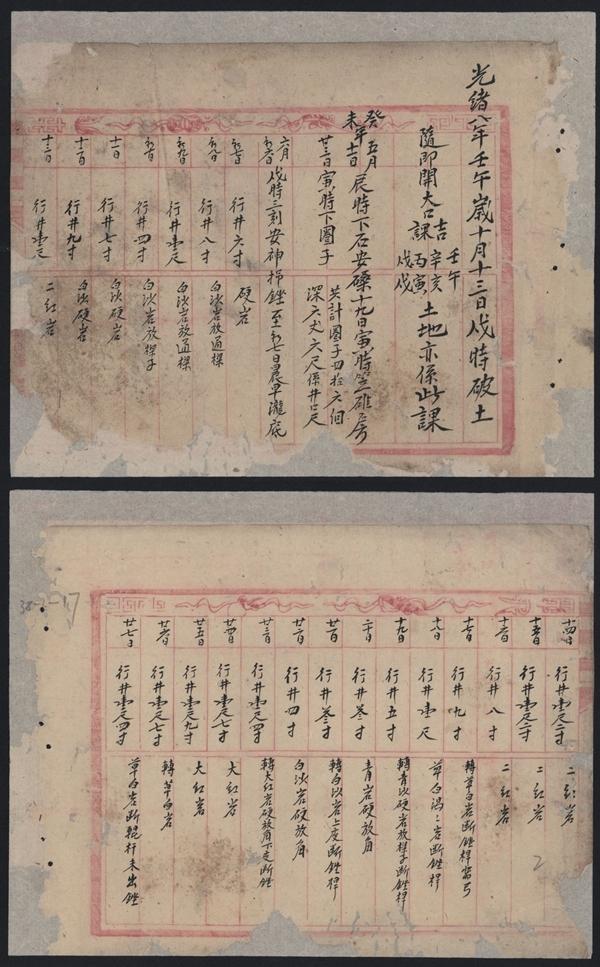 光緒八年壬午歲十月十三日戌時破土
隨即開大口吉課 壬午 辛亥 丙寅 戊戌 土地亦係此課
癸未年五月十二日辰時下石安礫十九日寅時竪碓房
廿三日寅時下圈子 共計圈子四拾六個 深六丈六尺係井口尺
六月初六日 戌時三刻安神揚銼至初七日晨早瀧底
初七日 行井六寸 硬岩
初八日 行井八寸 白沙岩放通樑
初九日 行井壹尺 白沙岩放通樑
初十日 行井四寸 白沙岩放樑子
十一日 行井七寸 白沙硬岩
十二日 行井九寸 白沙硬岩
十三日 行井壹尺 二紅岩
十四日 行井壹尺二寸 二紅岩
十五日 行井壹尺二寸 二紅岩
十六日 行井八寸 二紅岩
十七日 行井九寸 轉草白岩斷銼桿
十八日 行井壹尺 草白岩斷銼桿
十九日 行井五寸 轉青沙硬岩放樑子斷銼桿
二十日 行井叁寸 青岩硬放角
廿一日 行井叁寸 轉白沙岩上皮斷銼桿
廿二日 行井四寸 白沙岩硬放角
廿三日 行井壹尺四寸 轉大紅岩硬放角下走斷銼
廿四日 行井壹尺七寸 大紅岩
廿五日 行井壹尺九寸 大紅岩
廿六日 行井壹尺七寸 轉草白岩
廿七日 行井壹尺四寸 草白岩斷輥杆未出銼
2